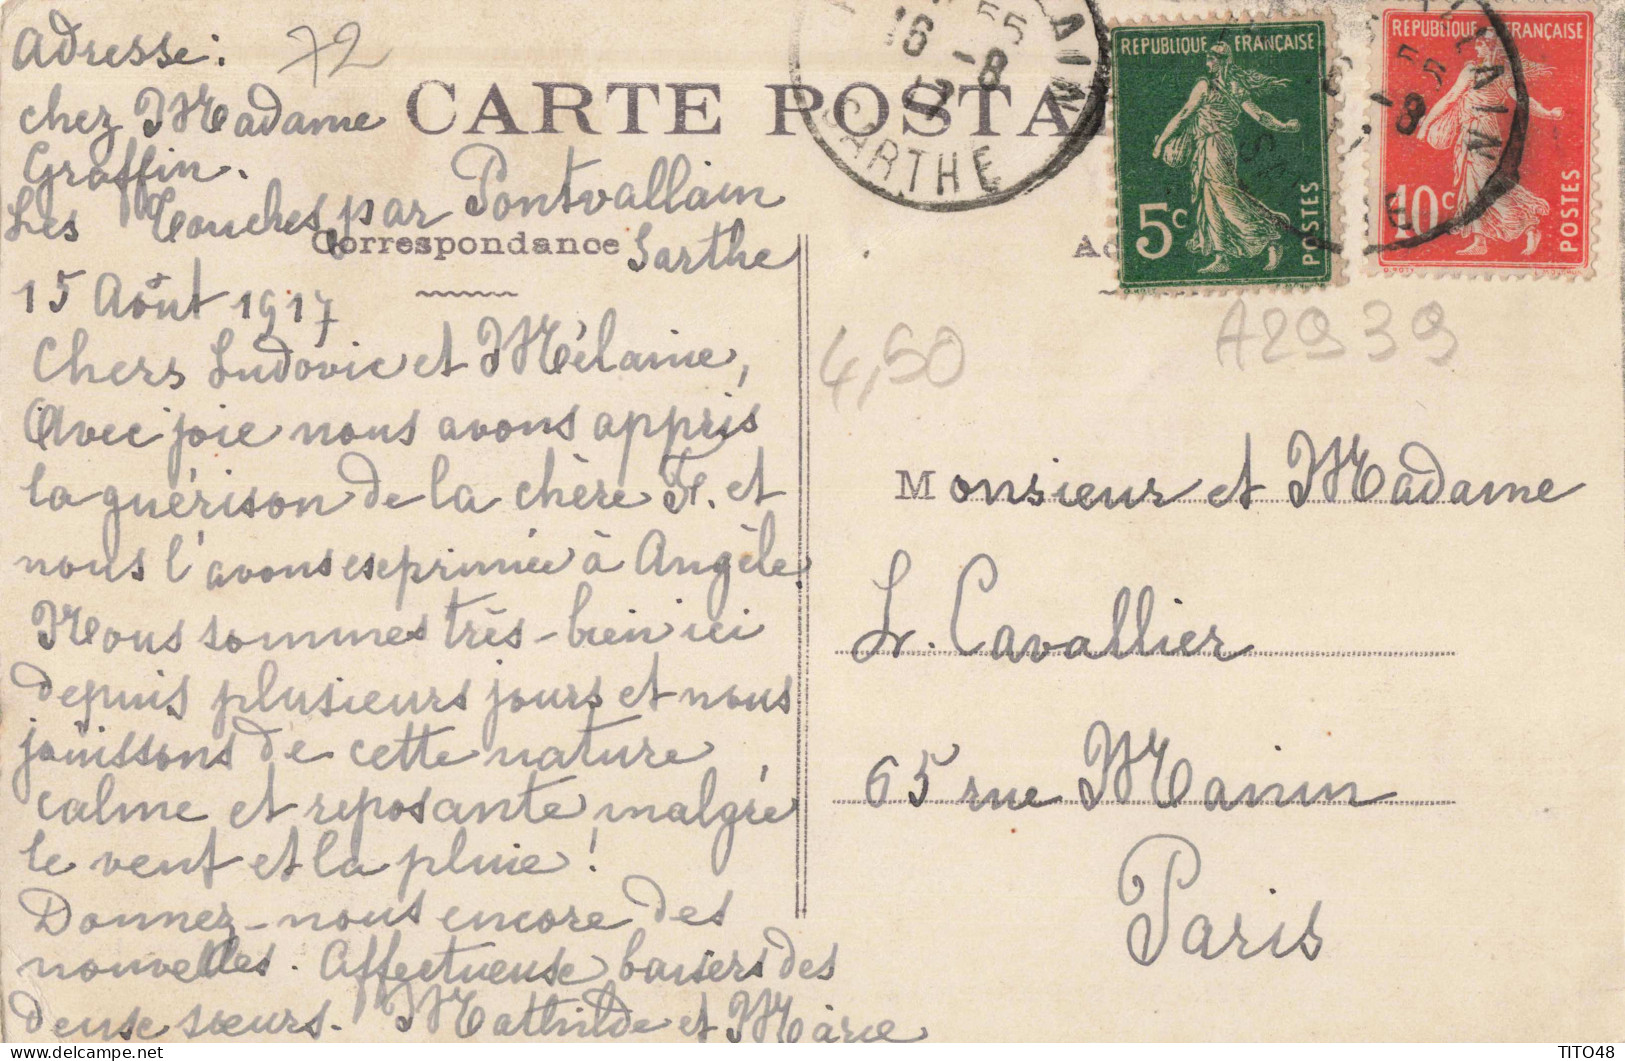 Adresse :
72
chez Madame
Graffin.
Les Touches par Pontvallain
Sarthe
CARTE POSTA
Correspondance
15 Août 1917
Chers Ludovic et Mélanie,
Avec joie nous avons appris
la guérison de la chère F. et
nous l'avons exprimée à Angèle.
Nous sommes très-bien ici
depuis plusieurs jours et nous
jouissons de cette nature
calme et reposante, malgré
le vent et la pluie !
Donnez-nous encore des
nouvelles. Affectueuse baisers des
deux sœurs. Mathilde et Marie
16 -8
17
SARTHE
REPUBLIQUE FRANÇAISE
5c
POSTES
REPUBLIQUE FRANÇAISE
10c
POSTES
4,50
A2939
Monsieur et Madame
L. Cavallier
65 rue Manin
Paris
TITO48